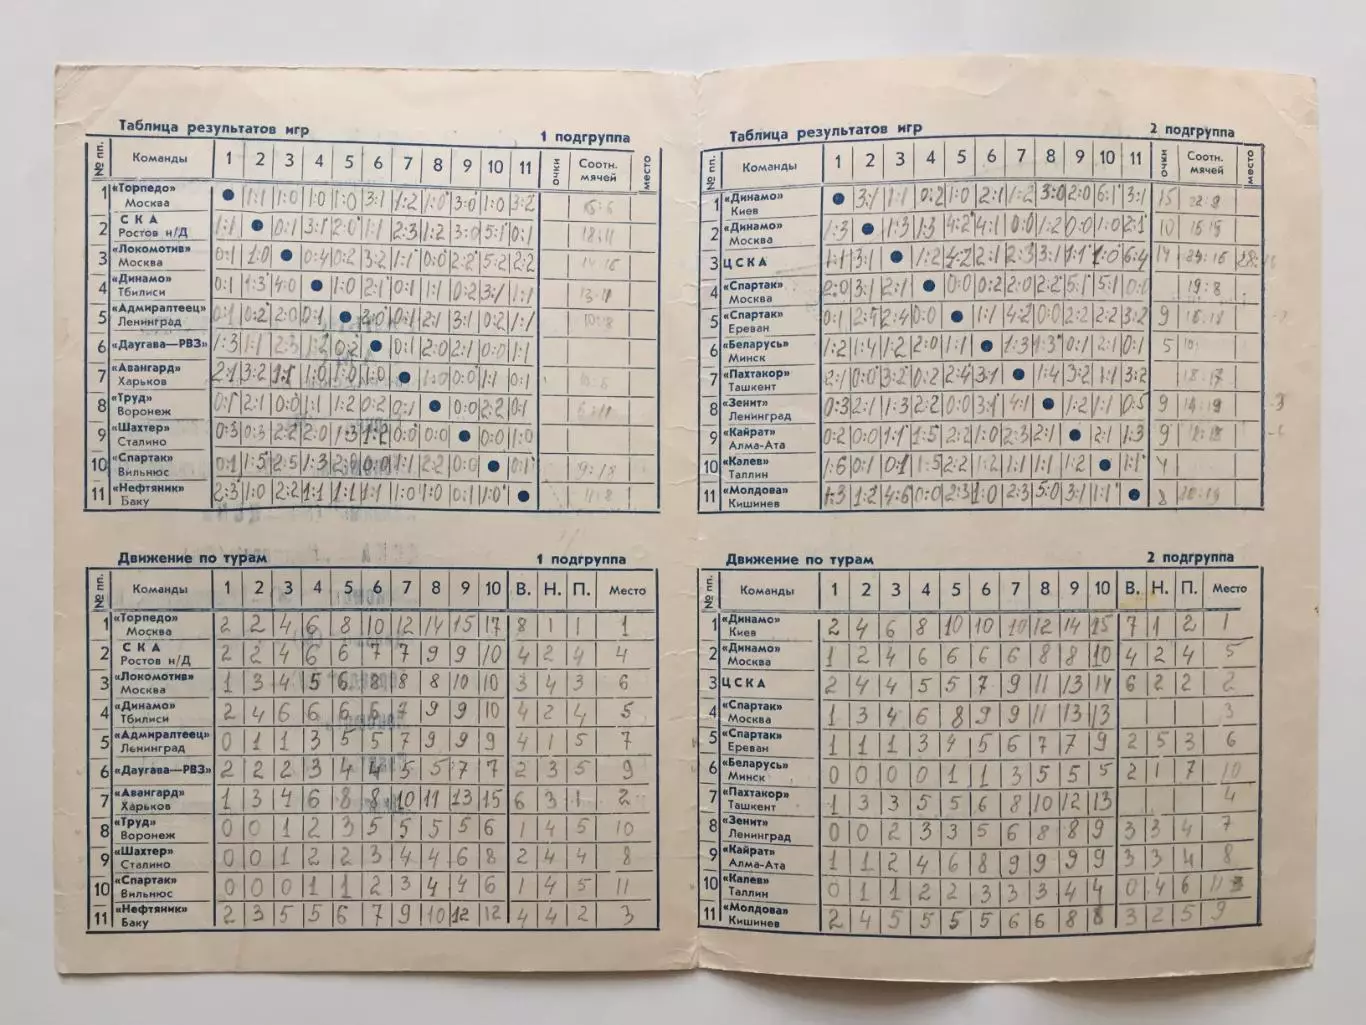 Таблица результатов игр 1 подгруппа
№ пп. Команды 1 2 3 4 5 6 7 8 9 10 11 очки Соотн. мячей место
1 «Торпедо» Москва ● 1:1 1:0 1:0 1:0 3:1 1:2 1:0 3:0 1:0 3:2
2 СКА Ростов н/Д 1:1 ● 0:1 3:1 2:0 1:1 2:3 1:2 3:0 5:1 0:1 18:11
3 «Локомотив» Москва 0:1 1:0 ● 0:4 0:2 3:2 1:1 0:0 2:2 5:2 2:2
4 «Динамо» Тбилиси 0:1 1:3 4:0 ● 1:0 2:1 0:1 1:1 0:2 3:1 1:1
5 «Адмиралтеец» Ленинград 0:1 0:2 2:0 0:1 ● 2:0 0:1 2:1 3:1 0:2 1:1
6 «Даугава—РВЗ» 1:3 1:1 2:3 1:2 0:2 ● 0:1 2:0 2:1 0:0 1:1
7 «Авангард» Харьков 2:1 3:2 1:1 1:0 1:0 1:0 ● 1:0 0:0 1:1 0:1
8 «Труд» Воронеж 0:1 2:1 0:0 1:1 1:2 0:2 0:1 ● 0:0 2:2 0:1
9 «Шахтер» Сталино 0:3 0:3 2:2 2:0 1:3 1:2 0:0 0:0 ● 0:0 1:0
10 «Спартак» Вильнюс 0:1 1:5 2:5 1:3 2:0 0:0 1:1 2:2 0:0 ● 0:1 9:18
11 «Нефтяник» Баку 2:3 1:0 2:2 1:1 1:1 1:1 1:0 1:0 0:1 1:0 ●
Движение по турам 1 подгруппа
№ пп. Команды 1 2 3 4 5 6 7 8 9 10 В. Н. П. Место
1 «Торпедо» Москва 2 2 4 6 8 10 12 14 15 17 8 1 1 1
2 СКА Ростов н/Д 2 2 4 6 6 7 7 9 9 10 4 2 4 4
3 «Локомотив» Москва 1 3 4 5 6 8 8 8 10 10 3 4 3 6
4 «Динамо» Тбилиси 2 4 6 6 6 6 8 9 9 10 4 2 4 5
5 «Адмиралтеец» Ленинград 0 1 1 3 5 5 7 9 9 9 4 1 5 7
6 «Даугава—РВЗ» 2 2 2 3 4 4 5 5 7 7 2 3 5 9
7 «Авангард» Харьков 1 3 4 6 8 8 10 11 13 15 6 3 1 2
8 «Труд» Воронеж 0 0 1 2 3 5 5 5 5 6 1 4 5 10
9 «Шахтер» Сталино 0 0 1 2 2 3 4 4 6 8 2 4 4 8
10 «Спартак» Вильнюс 0 0 0 1 1 2 3 4 4 6 1 4 5 11
11 «Нефтяник» Баку 2 3 5 5 6 7 9 10 12 12 4 4 2 3
Таблица результатов игр 2 подгруппа
№ пп. Команды 1 2 3 4 5 6 7 8 9 10 11 очки Соотн. мячей место
1 «Динамо» Киев ● 3:1 1:1 0:2 1:0 2:1 1:2 3:0 2:0 6:1 3:1 15
2 «Динамо» Москва 1:3 ● 1:3 1:3 4:2 4:1 0:0 1:2 0:0 1:0 2:1 10
3 ЦСКА 1:1 3:1 ● 1:2 4:2 2:1 2:3 3:1 1:1 1:0 6:4 14
4 «Спартак» Москва 2:0 3:1 2:1 ● 0:0 0:2 2:0 2:2 5:1 5:1 0:1 19:8
5 «Спартак» Ереван 0:1 2:4 2:4 0:0 ● 1:1 4:2 0:0 2:2 2:2 3:2 9
6 «Беларусь» Минск 1:2 1:4 1:2 2:0 1:1 ● 1:3 1:3 0:1 2:1 0:1 5
7 «Пахтакор» Ташкент 2:1 0:0 3:2 0:2 2:4 3:1 ● 1:4 3:2 1:1 3:2 18:17
8 «Зенит» Ленинград 0:3 2:1 1:3 2:2 0:0 3:1 4:1 ● 1:2 1:1 0:5 9
9 «Кайрат» Алма-Ата 0:2 0:0 1:1 1:5 2:2 1:0 2:3 2:1 ● 2:1 1:3 9
10 «Калев» Таллин 1:6 0:1 0:1 1:5 2:2 1:2 1:1 1:1 1:2 ● 1:1 4
11 «Молдова» Кишинев 1:3 1:2 4:6 0:0 2:3 1:0 2:3 5:0 3:1 1:1 ● 8
Движение по турам 2 подгруппа
№ пп. Команды 1 2 3 4 5 6 7 8 9 10 В. Н. П. Место
1 «Динамо» Киев 2 4 6 8 10 10 10 12 14 15 7 1 2 1
2 «Динамо» Москва 1 2 4 6 6 6 6 8 8 10 4 2 4 5
3 ЦСКА 2 4 4 5 5 7 9 11 13 14 6 2 2 2
4 «Спартак» Москва 1 3 4 6 8 9 9 11 13 13 3
5 «Спартак» Ереван 1 1 1 3 4 5 6 7 7 9 2 5 3 6
6 «Беларусь» Минск 0 0 0 0 1 1 3 5 5 5 2 1 7 10
7 «Пахтакор» Ташкент 1 3 3 5 5 6 8 10 12 13 4
8 «Зенит» Ленинград 0 0 2 3 3 5 6 8 8 9 3 3 4 7
9 «Кайрат» Алма-Ата 1 1 2 4 6 8 9 9 9 9 3 3 4 8
10 «Калев» Таллин 0 1 1 2 2 3 3 3 4 4 0 4 6
11 «Молдова» Кишинев 2 4 5 5 5 5 6 6 8 8 3 2 5 9